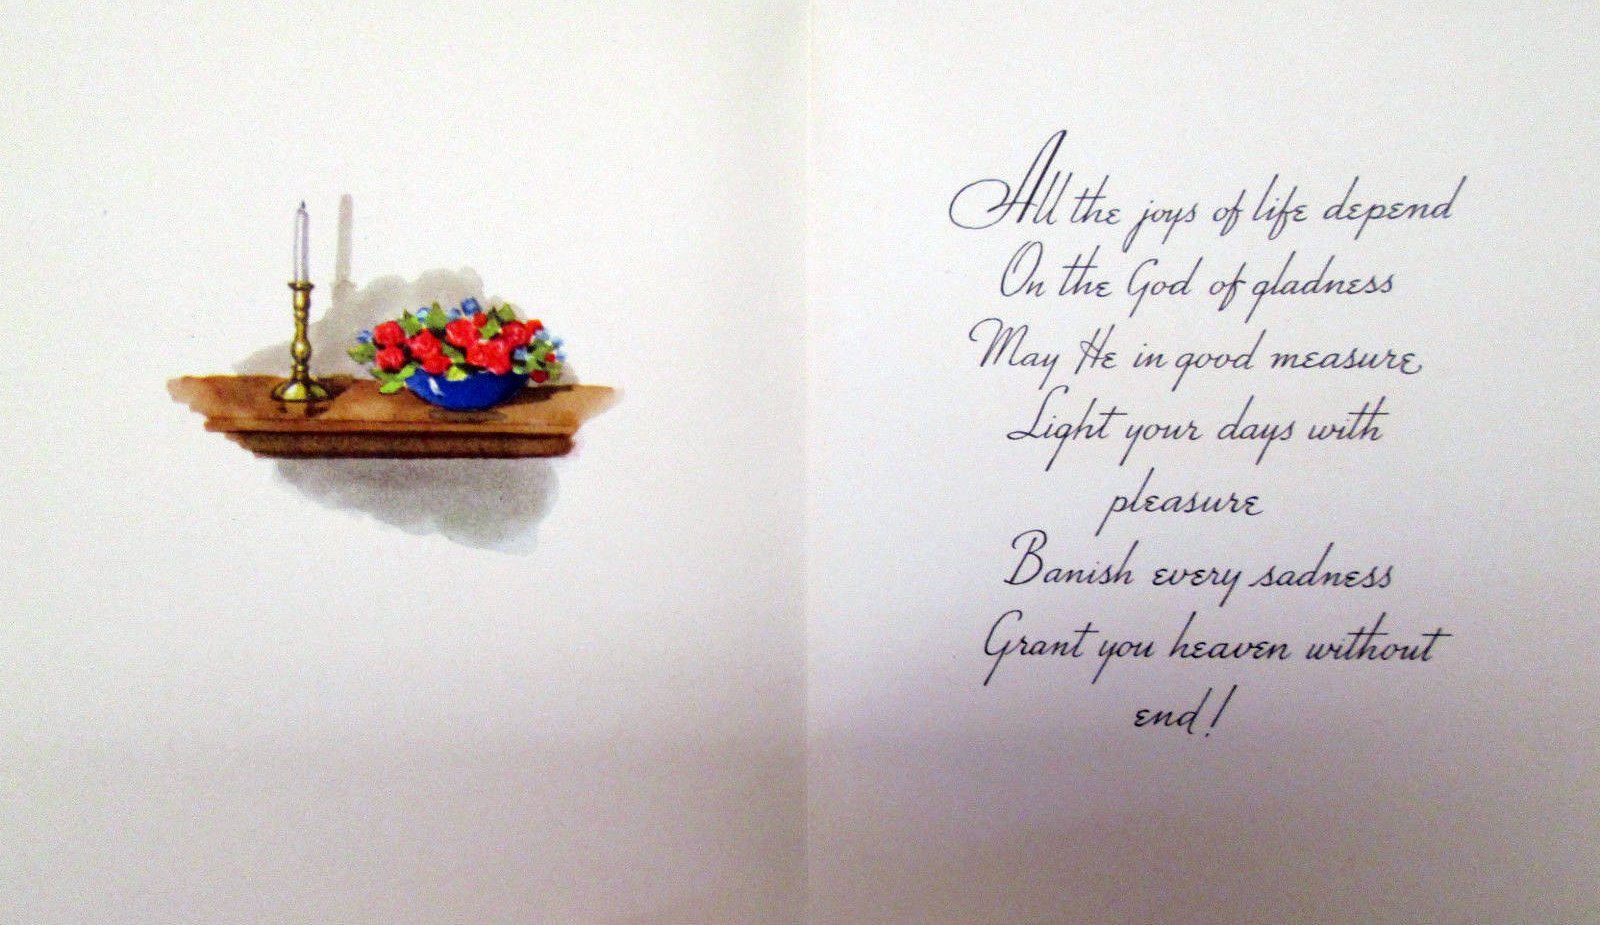 All the joys of life depend
On the God of gladness
May He in good measure
Light your days with
pleasure
Banish every sadness
Grant you heaven without
end!